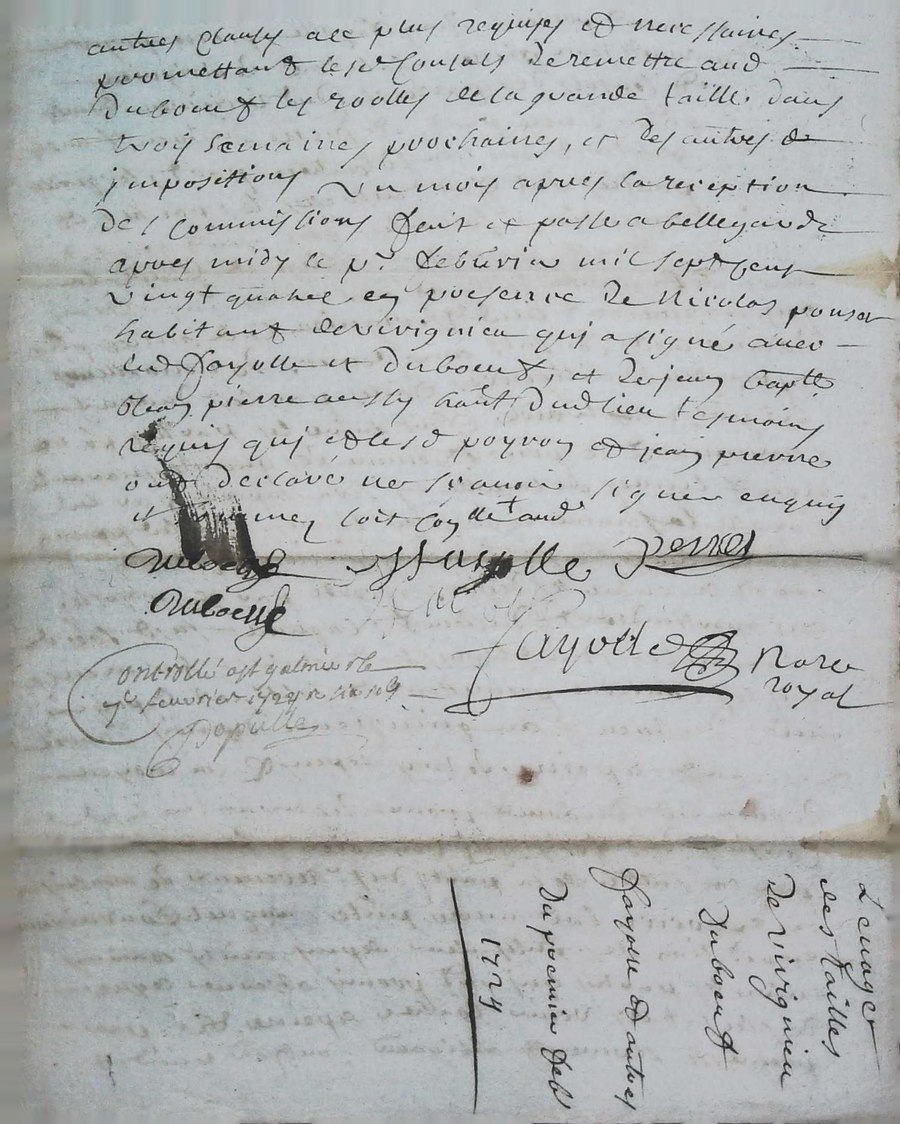 autres clauses a ce plus requises et necessaires
promettant les sr Consuls de remettre aud
duboeuf les roolles de la grande taille dans
trois semaines prochaines, et des autres
jmpositions un mois apres la reception
des Commissions fait et passé a bellegarde
apres midy le pr. febvrier mil sept cent
vingt quatre en presence de Nicolas ponset
habitant de virignieu qui a signé avec
led fayolle et duboeuf, et de jean bapte
jean pierre aussy habt dud lieu tesmoins
requis qui et led poyron et jean pierre
ont declaré ne scavoir signer enquis
et soit Controllé aud
duboeuf fayolle
duboeuf
fayolle Nore
royal
Controllé a st galmier le
fevrier 1724
Levages
des tailles
de virignieu
duboeuf
fayolle et autres
du premier feb
1724